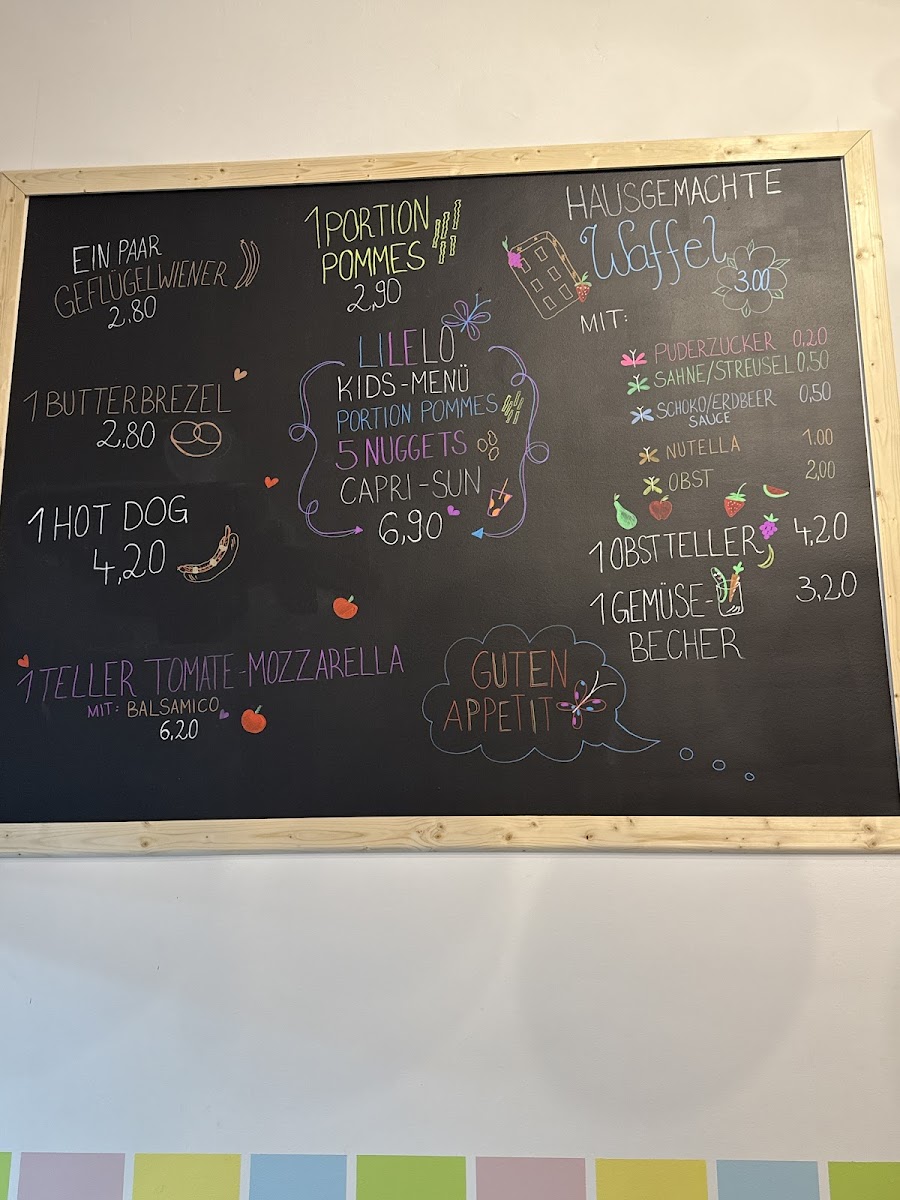 EIN PAAR
GEFLÜGELWIENER
2,80
1 BUTTERBREZEL
2,80
1 HOT DOG
4,20
1 TELLER TOMATE-MOZZARELLA
MIT: BALSAMICO
6,20
1 PORTION
POMMES
2,90
LILELO
KIDS-MENÜ
PORTION POMMES
5 NUGGETS
CAPRI-SUN
6,90
HAUSGEMACHTE
Waffel
3.00
MIT:
PUDERZUCKER 0,20
SAHNE/STREUSEL 0,50
SCHOKO/ERDBEER 0,50
SAUCE
NUTELLA 1.00
OBST 2,00
1 OBSTTELLER 4,20
1 GEMÜSE- 3,20
BECHER
GUTEN
APPETIT